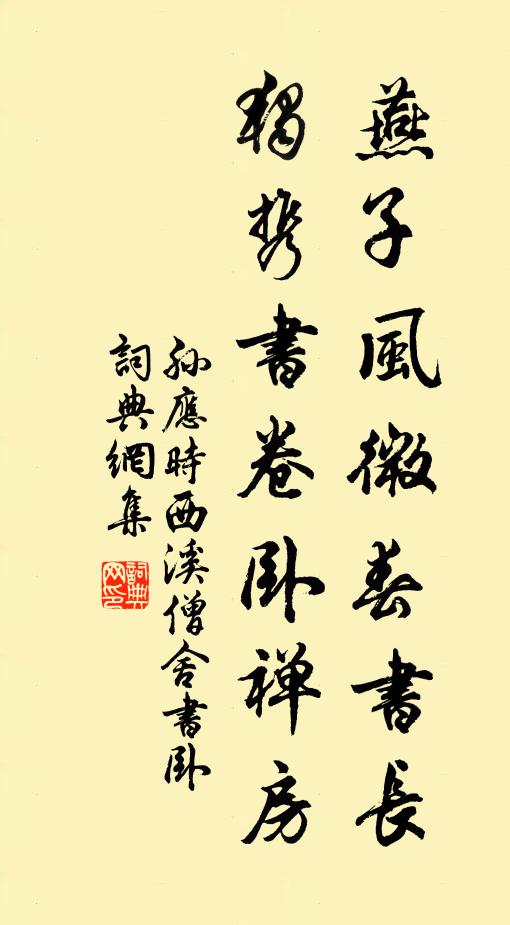 燕子風微春書長
獨携書卷卧禅房
孫應時西溪僧舍書卧
詞典網集
詞典网印